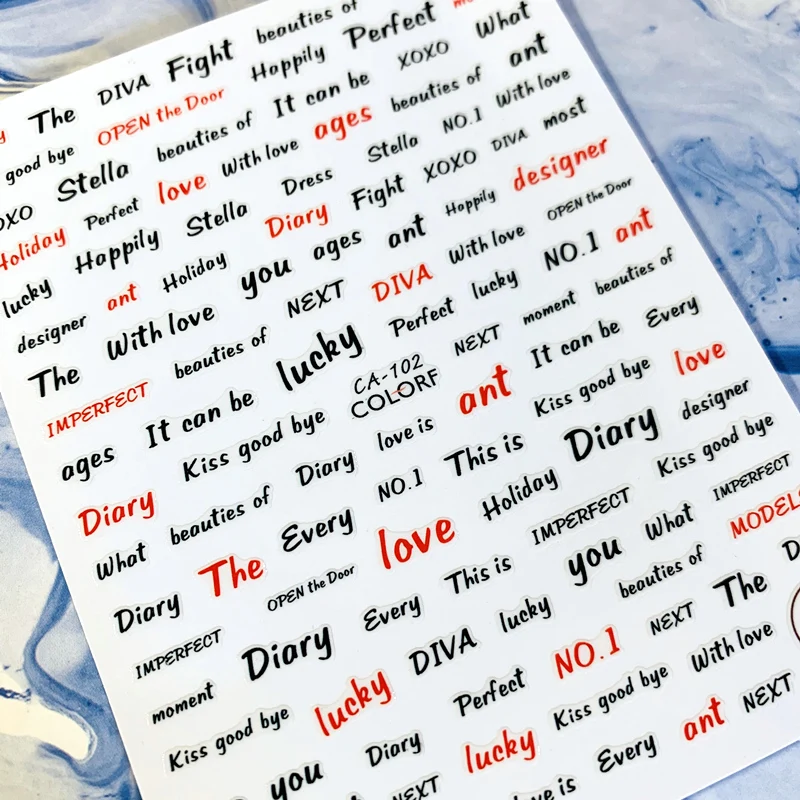 The DIVA Fight beauties of
OPEN the Door Happily Perfect
good bye beauties of It can be XOXO What
Stella love With love ages beauties of ant
OXO Perfect Stella Dress Stella NO.1 With love
Holiday Happily Diary Fight XOXO DIVA most
lucky ant Holiday you ages ant Happily designer
designer With love NEXT DIVA With love OPEN the Door
The beauties of lucky Perfect lucky NO.1 ant
IMPERFECT It can be CA-102 NEXT moment beauties of
COLORF
ages Kiss good bye ant It can be Every
Diary Diary love is Kiss good bye love
What beauties of NO.1 This is Diary designer
The Every Holiday Kiss good bye
Diary OPEN the Door love IMPERFECT IMPERFECT
IMPERFECT Every This is you What MODELS
Diary DIVA lucky beauties of
moment lucky NO.1 NEXT The
Kiss good bye Perfect With love
you Diary lucky Kiss good bye
NEXT Every ant NEXT